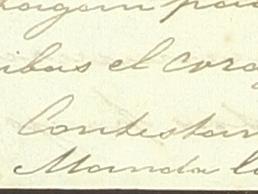 hagan pa
ibas el cora
Contestan
Manda l